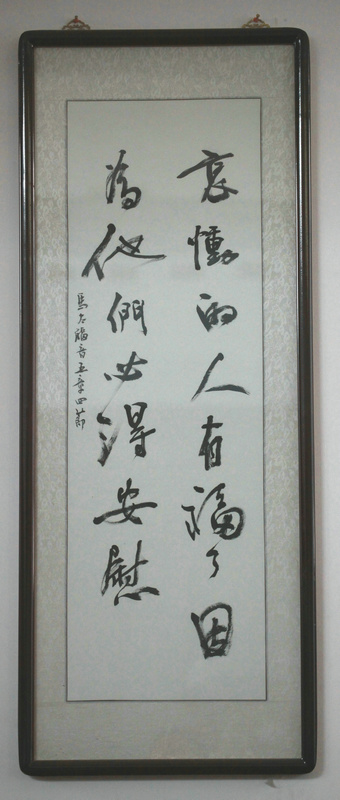 哀慟的人有福了因
為他們必得安慰
馬太福音五章四節